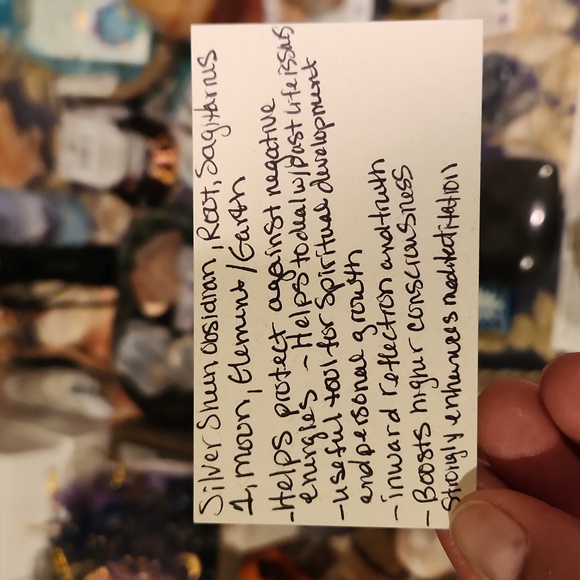 Silver Sheen obsidian, Root, Sagitarius
1, moon, Element/Earth
-Helps protect against negative
energies - Helps to deal w/past life issus
-useful tool for Spiritual development
and personal growth
-inward reflection and truth
-Boosts higher consciusness
strongly enhances meditatitation